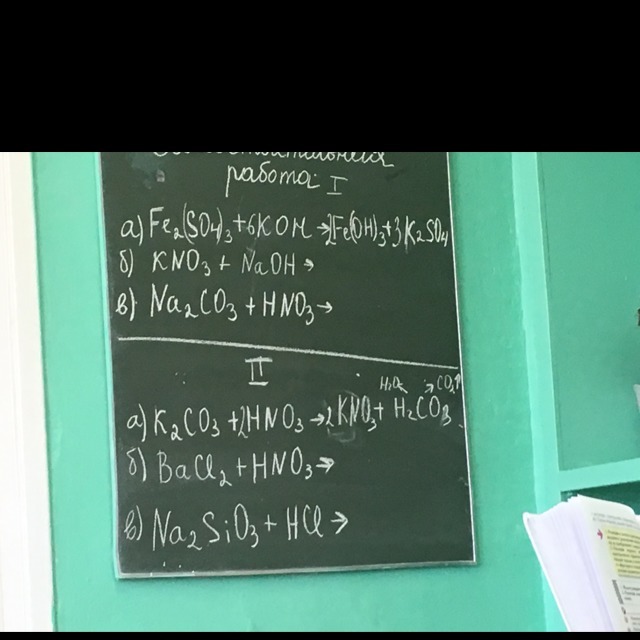 работа I
а) Fe₂(SO₄)₃+6KOH→2Fe(OH)₃+3K₂SO₄
б) KNO₃+NaOH→
в) Na₂CO₃+HNO₃→
II
H₂O ↗ CO₂↑
а) K₂CO₃+2HNO₃→2KNO₃+H₂CO₃
б) BaCl₂+HNO₃→
в) Na₂SiO₃+HCl→